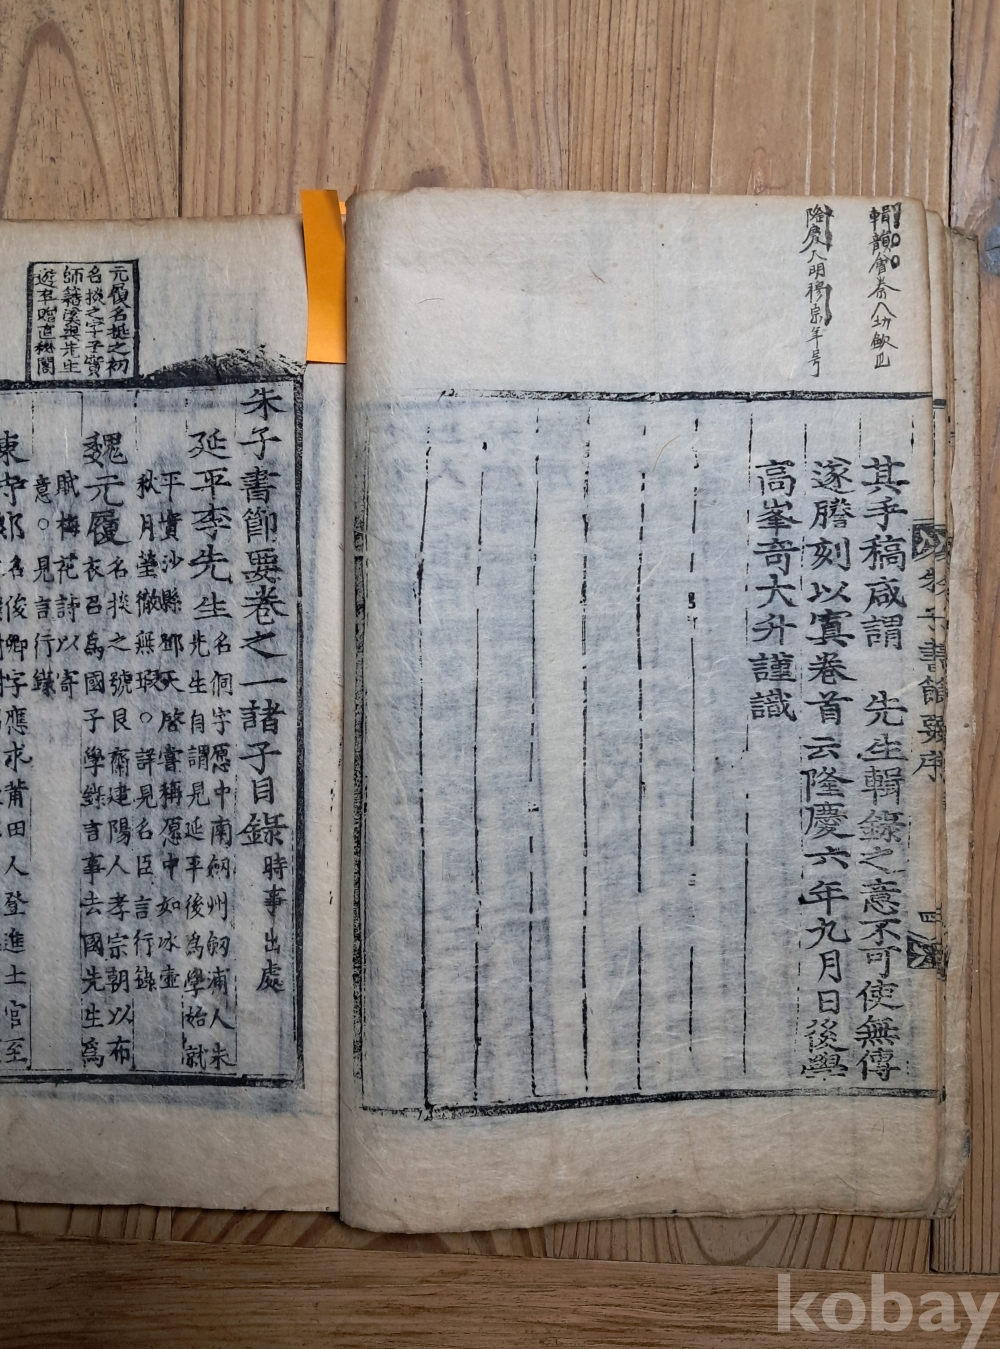 隆慶人明穆宗年号
其手稿咸謂　先生輯錄之意不可使無傳
遂謄刻以寘卷首云隆慶六年九月日後學
高峯奇大升謹識
朱子書節要序
四
朱子書節要卷之一諸子目錄 時事出處
延平李先生 名侗字愿中南劒州劒浦人朱
先生自謂見延平後爲學始就
平實沙縣鄧天啓嘗稱愿中如氷壺
秋月瑩徹無瑕○詳見名臣言行錄
魏元履 名掞之號艮齋建陽人孝宗朝以布
衣召爲國子學錄言事去國先生爲
賦梅花詩以寄
意○見言行錄
名俊卿字應求莆田人登進士官至
元履名挺之初
名掞之字子實
師籍溪與先生
遊卒贈直秘閣
kobay